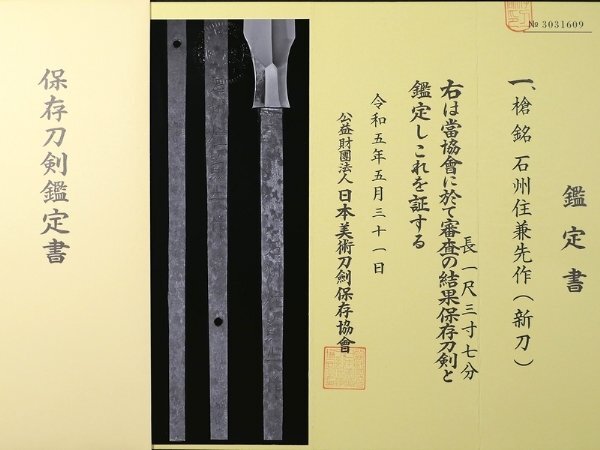 № 3031609
鑑定書
一、槍 銘 石州住兼先作(新刀)
長一尺三寸七分
右は當協會に於て審査の結果保存刀剣と
鑑定しこれを証する
令和五年五月三十一日
公益財團法人 日本美術刀劍保存協會
保存刀剣鑑定書